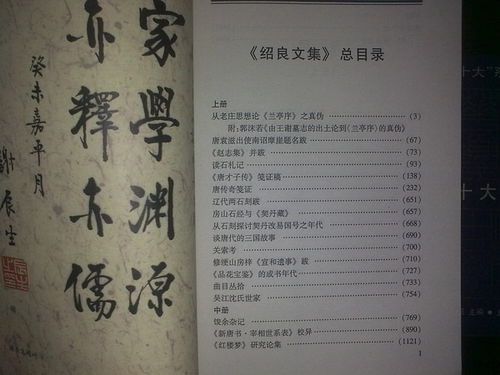 家學淵源
亦釋亦儒
癸未嘉平月
謝辰生
《绍良文集》总目录
上册
从老庄思想论《兰亭序》之真伪 (3)
附:郭沫若《由王谢墓志的出土论到〈兰亭序〉的真伪》
唐袁滋出使南诏摩崖题名跋 (67)
《赵志集》并跋 (73)
读石札记 (93)
《唐才子传》笺证稿 (138)
唐传奇笺证 (232)
辽代两石刻跋 (651)
房山石经与《契丹藏》 (657)
从石刻探讨契丹改易国号之年代 (668)
谈唐代的三国故事 (690)
关索考 (700)
修绠山房梓《宣和遗事》跋 (710)
《品花宝鉴》的成书年代 (727)
曲目丛拾 (733)
吴江沈氏世家 (754)
中册
馂余杂记 (769)
《新唐书·宰相世系表》校异 (890)
《红楼梦》研究论集 (1121)
1
十大
十大